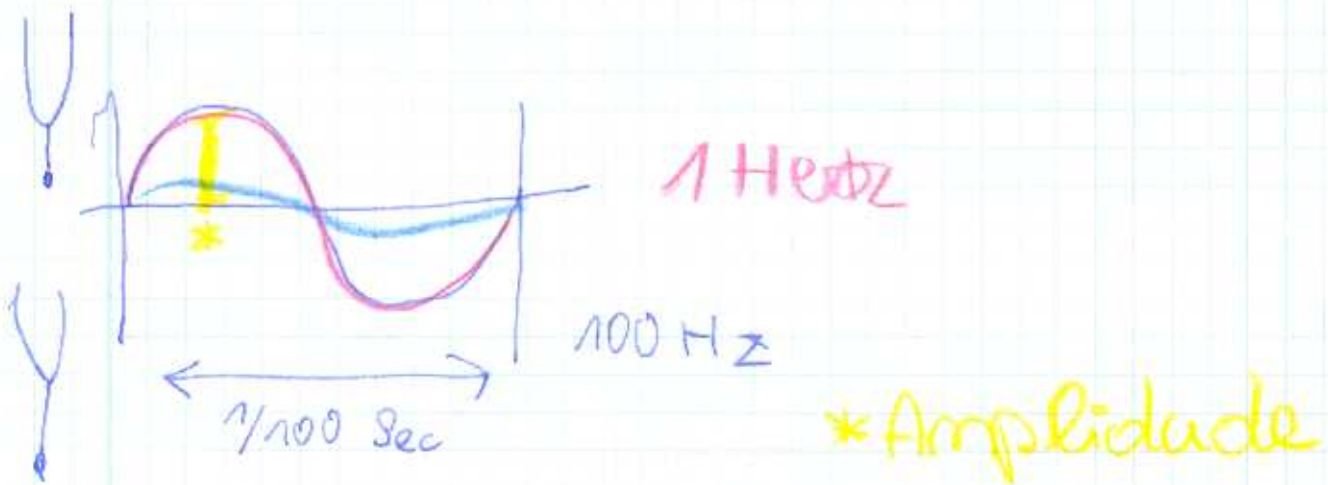 1 Hertz
100 Hz
1/100 Sec
*Amplidade